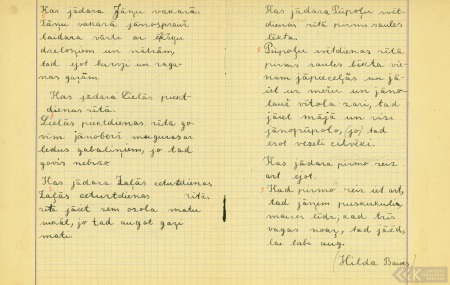 Kas jādara Jāņu vakarā.
Jāņu vakarā jānosprauž
laidara vārti ar
dzeloņiem un nātrām,
tad ejot burvji un raga-
nas garām.
Kas jādara Lielās piekt-
dienas rītā.
Lielās piektdienas rītā go-
vīm jānoberž muguras ar
ledus gabaliņiem, jo tad
govis nebizo.
Kas jādara Zaļās ceturtdienas
Zaļās ceturtdienas rītā.
rītā jāiet zem ozola matu
sukāt, jo tad augot gaŗi
mati.
Kas jādara Pūpoļu svēt-
dienas rītā pirms saules
lēkta.
Pūpoļu svētdienas rītā
pirms saules lēkta vie-
nam jāpieceļas un jā-
iet uz mežu un jāno-
lauž vītola zari, tad
jāiet mājā un visi
jānopūpolo, (jo) tad
esot veseli cilvēki.
Kas jādara pirmo reiz
art ejot.
Kad pirmo reiz iet art,
tad jāņem puskukulis
maizes līdz; kad trīs
vagas noaŗ, tad jāēd,
lai labi aug.
(Hilda